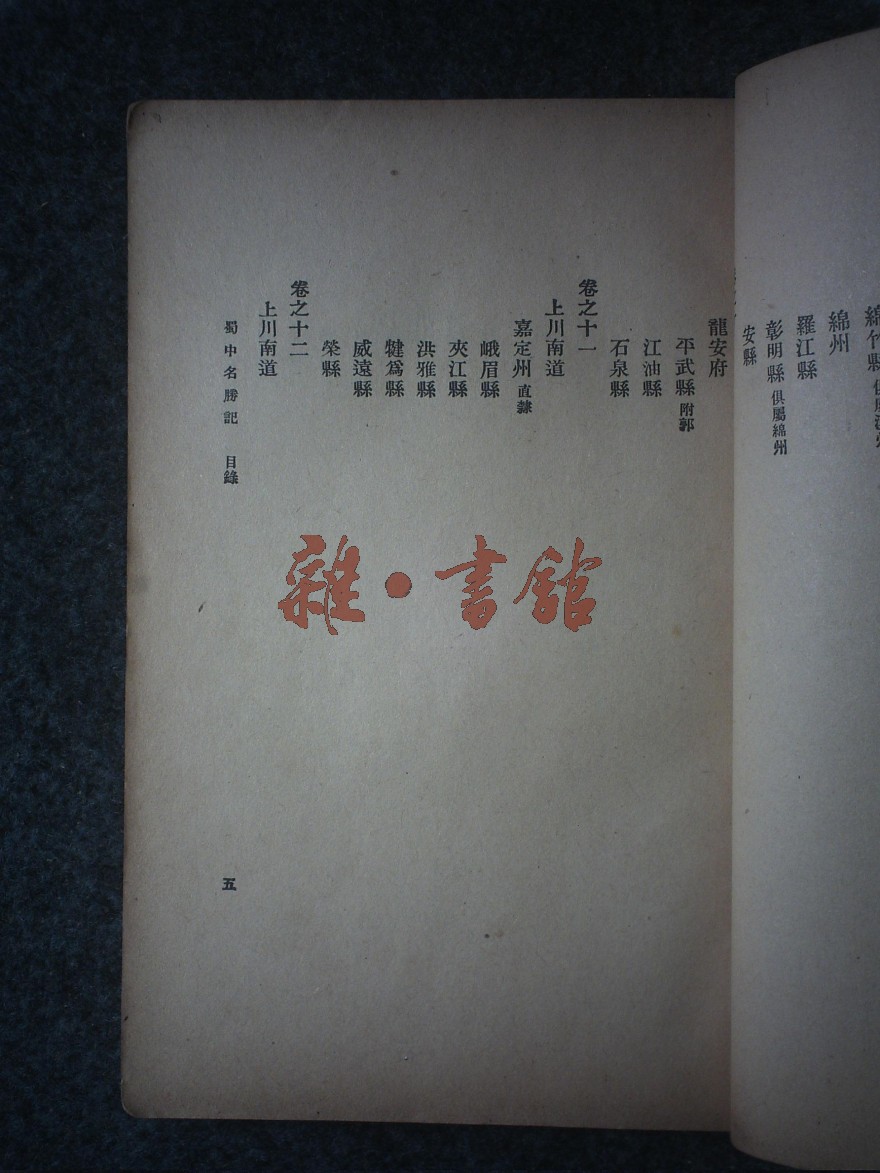 綿州
羅江縣
彰明縣 俱屬綿州
安縣
龍安府
平武縣 附郭
江油縣
石泉縣
卷之十一
上川南道
嘉定州 直隸
峨眉縣
夾江縣
洪雅縣
犍爲縣
威遠縣
榮縣
卷之十二
上川南道
蜀中名勝記 目錄
五
雜·書館